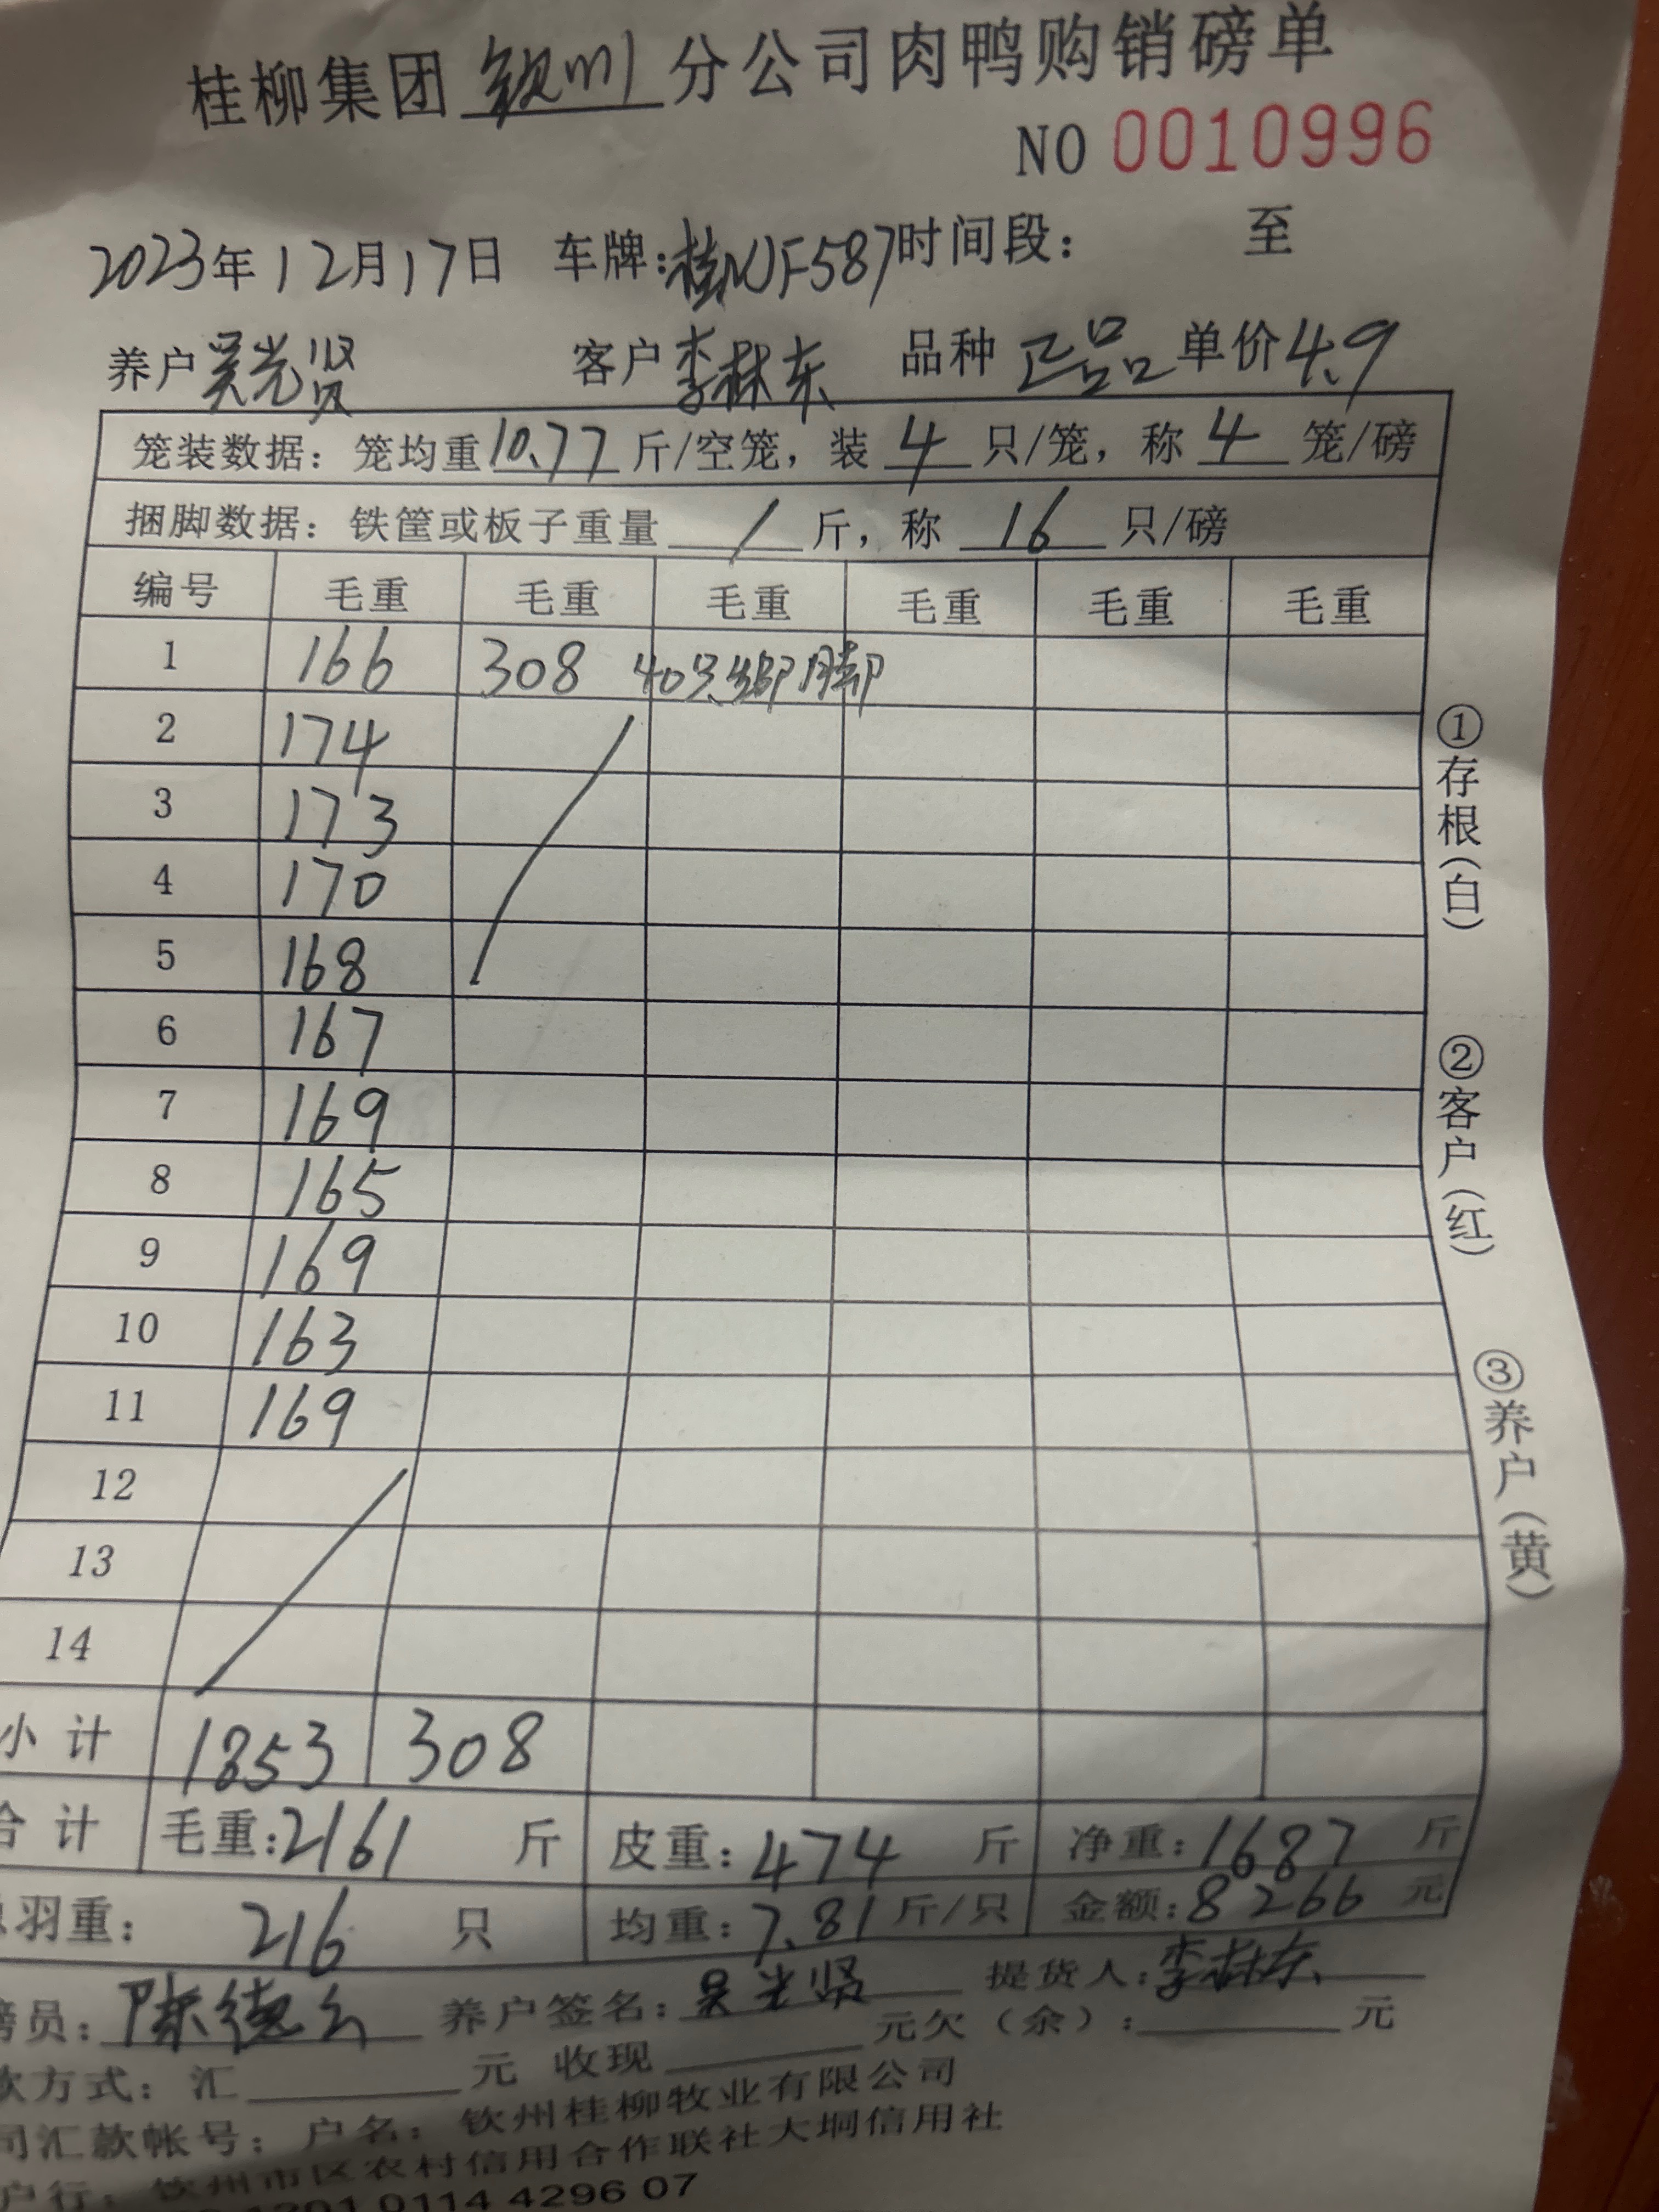 桂柳集团 钦州 分公司肉鸭购销磅单
NO 0010996
2023年12月17日 车牌:桂NJF587 时间段: 至
养户 吴光贤 客户 李林东 品种 正品 单价 4.9
笼装数据: 笼均重 10.77 斤/空笼, 装 4 只/笼, 称 4 笼/磅
捆脚数据: 铁筐或板子重量 / 斤, 称 16 只/磅
编号 毛重 毛重 毛重 毛重 毛重 毛重
1 166 308 40只绑脚
2 174
3 173
4 170
5 168
6 167
7 169
8 165
9 169
10 163
11 169
12
13
14
小计 1853 308
合计 毛重:2161 斤 皮重:474 斤 净重:1687 斤
羽重: 216 只 均重:7.81 斤/只 金额:8266 元
磅员: 陈德 养户签名: 吴光贤 提货人: 李林东
款方式: 汇 元 收现 元欠(余): 元
司汇款帐号: 户名: 钦州桂柳牧业有限公司
户行: 钦州市区农村信用合作联社大垌信用社
1201 0114 4296 07
①存根(白)
②客户(红)
③养户(黄)